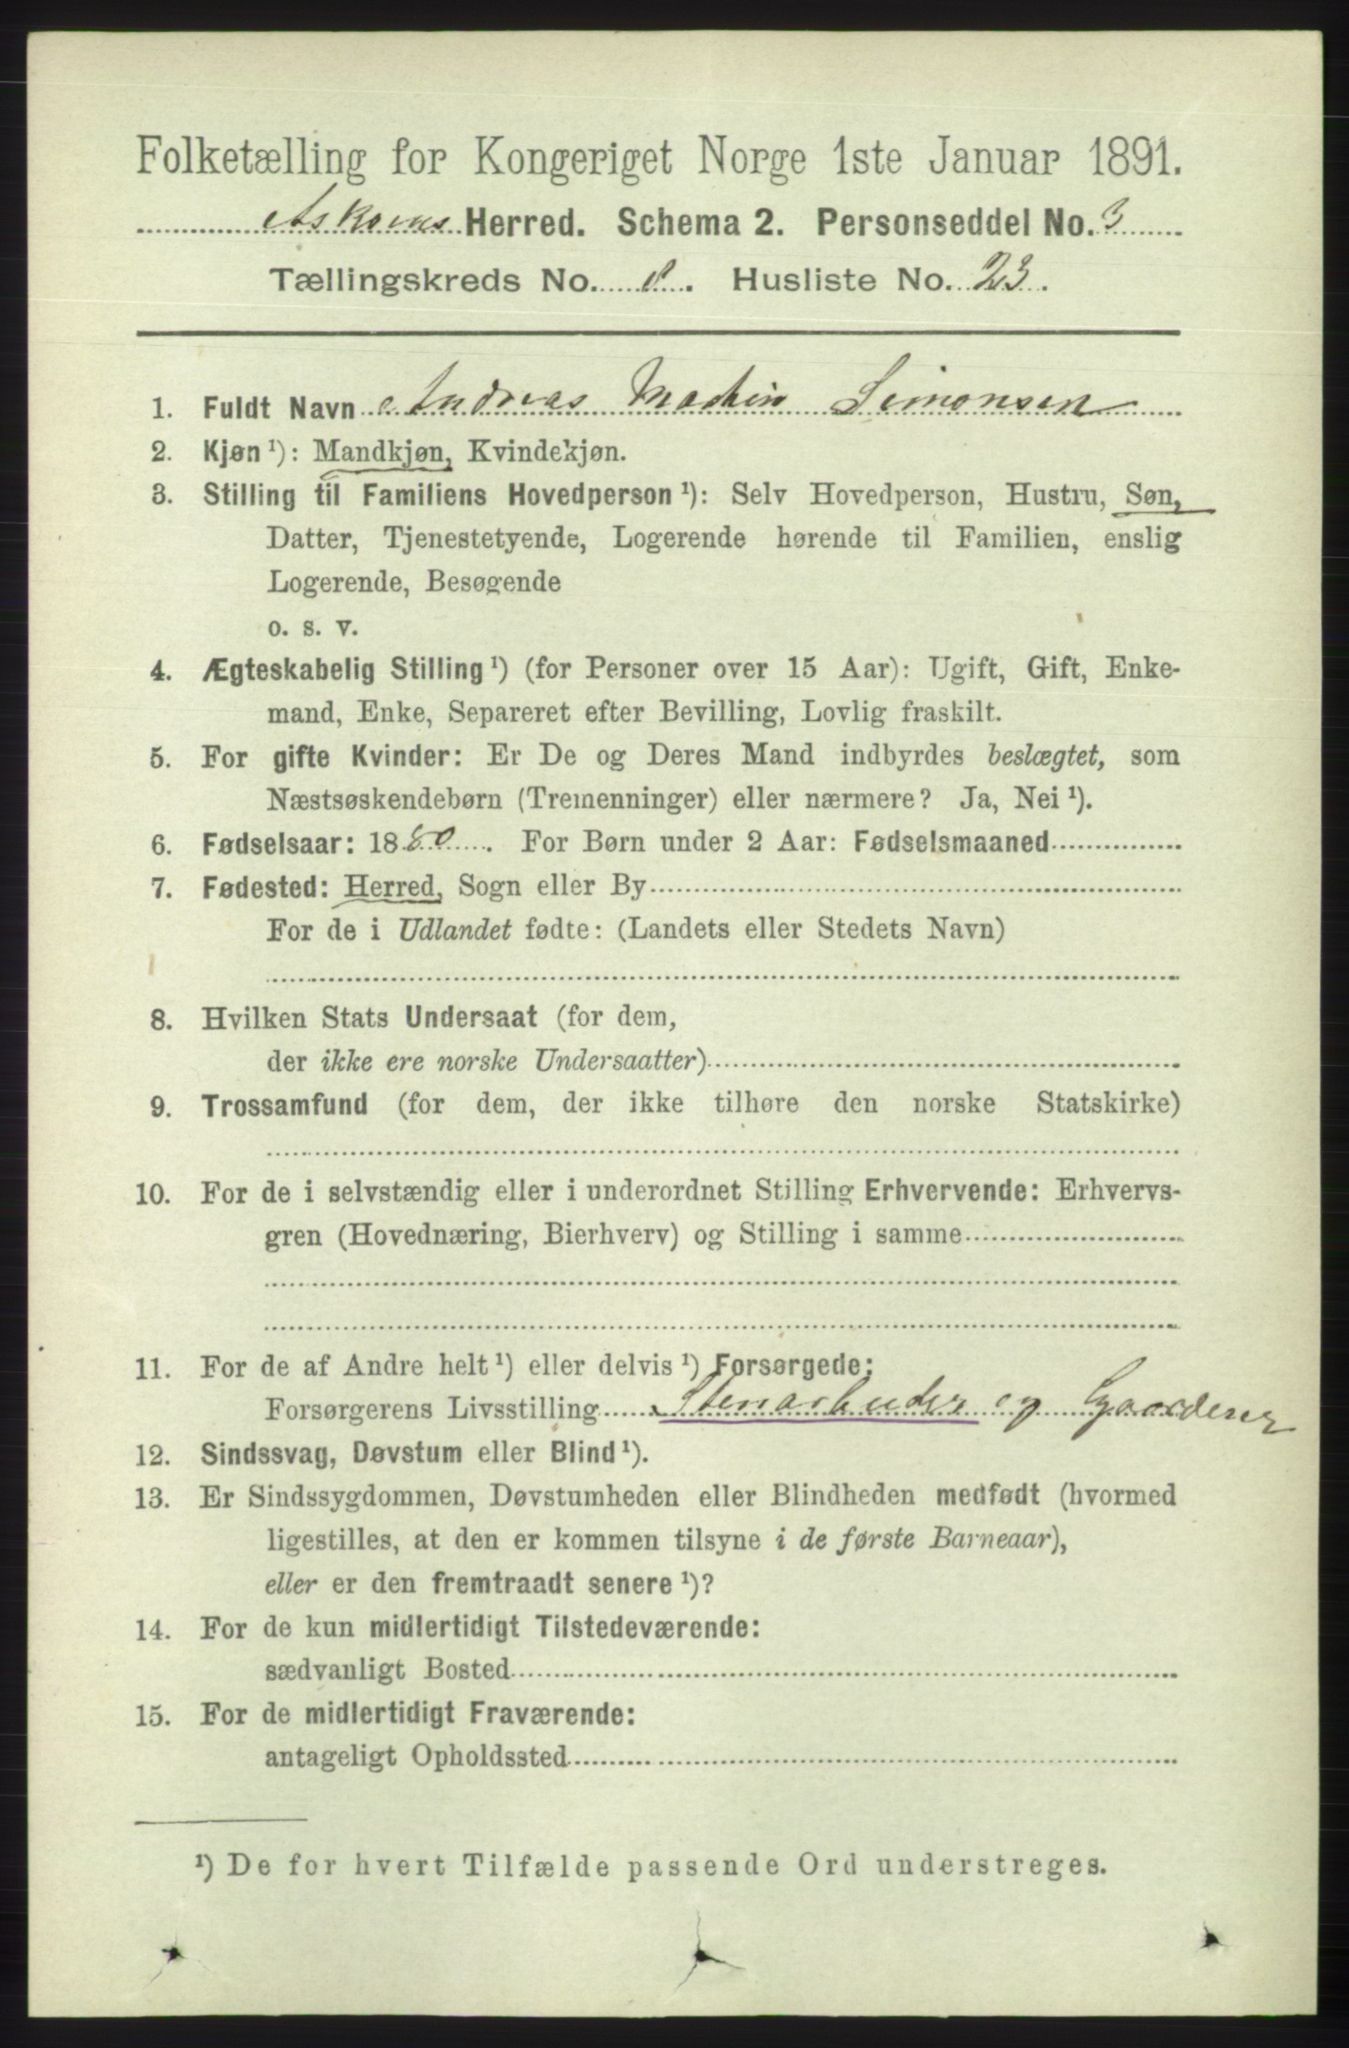 Folketælling for Kongeriget Norge 1ste Januar 1891.
Askvens Herred. Schema 2. Personseddel No. 3
Tællingskreds No. 8. Husliste No. 23.
1. Fuldt Navn Andreas Martin Simonsen
2. Kjøn ¹): Mandkjøn, Kvindekjøn.
3. Stilling til Familiens Hovedperson ¹): Selv Hovedperson, Hustru, Søn,
Datter, Tjenestetyende, Logerende hørende til Familien, enslig
Logerende, Besøgende
o. s. v.
4. Ægteskabelig Stilling ¹) (for Personer over 15 Aar): Ugift, Gift, Enke-
mand, Enke, Separeret efter Bevilling, Lovlig fraskilt.
5. For gifte Kvinder: Er De og Deres Mand indbyrdes beslægtet, som
Næstsøskendebørn (Tremenninger) eller nærmere? Ja, Nei ¹).
6. Fødselsaar: 1880. For Børn under 2 Aar: Fødselsmaaned
7. Fødested: Herred, Sogn eller By
For de i Udlandet fødte: (Landets eller Stedets Navn)
8. Hvilken Stats Undersaat (for dem,
der ikke ere norske Undersaatter)
9. Trossamfund (for dem, der ikke tilhøre den norske Statskirke)
10. For de i selvstændig eller i underordnet Stilling Erhvervende: Erhvervs-
gren (Hovednæring, Bierhverv) og Stilling i samme
11. For de af Andre helt ¹) eller delvis ¹) Forsørgede:
Forsørgerens Livsstilling Stenarbeider og Gaardeier
12. Sindssvag, Døvstum eller Blind ¹).
13. Er Sindssygdommen, Døvstumheden eller Blindheden medfødt (hvormed
ligestilles, at den er kommen tilsyne i de første Barneaar),
eller er den fremtraadt senere ¹)?
14. For de kun midlertidigt Tilstedeværende:
sædvanligt Bosted
15. For de midlertidigt Fraværende:
antageligt Opholdssted
¹) De for hvert Tilfælde passende Ord understreges.